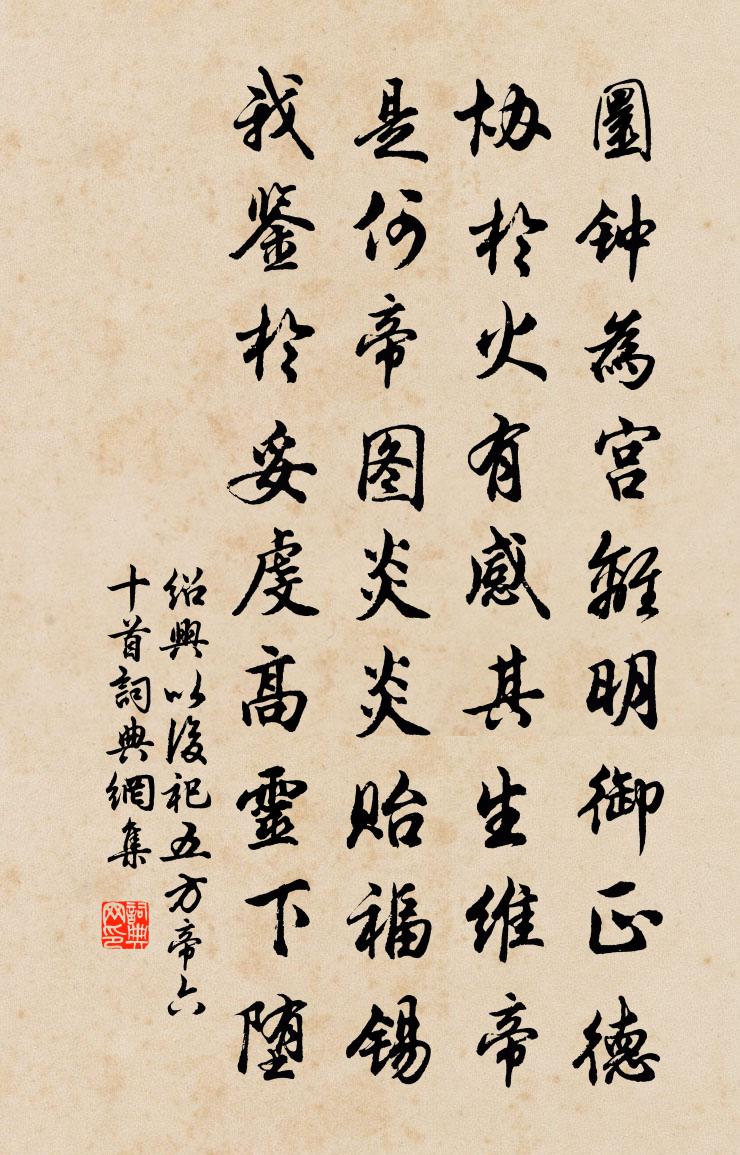 圜钟為宫離明御正德
协於火有感其生维帝
是何帝图炎炎贻福锡
我鉴於妥虔高靈下堕
绍興以後祀五方帝六
十首詞典網集
詞典网印